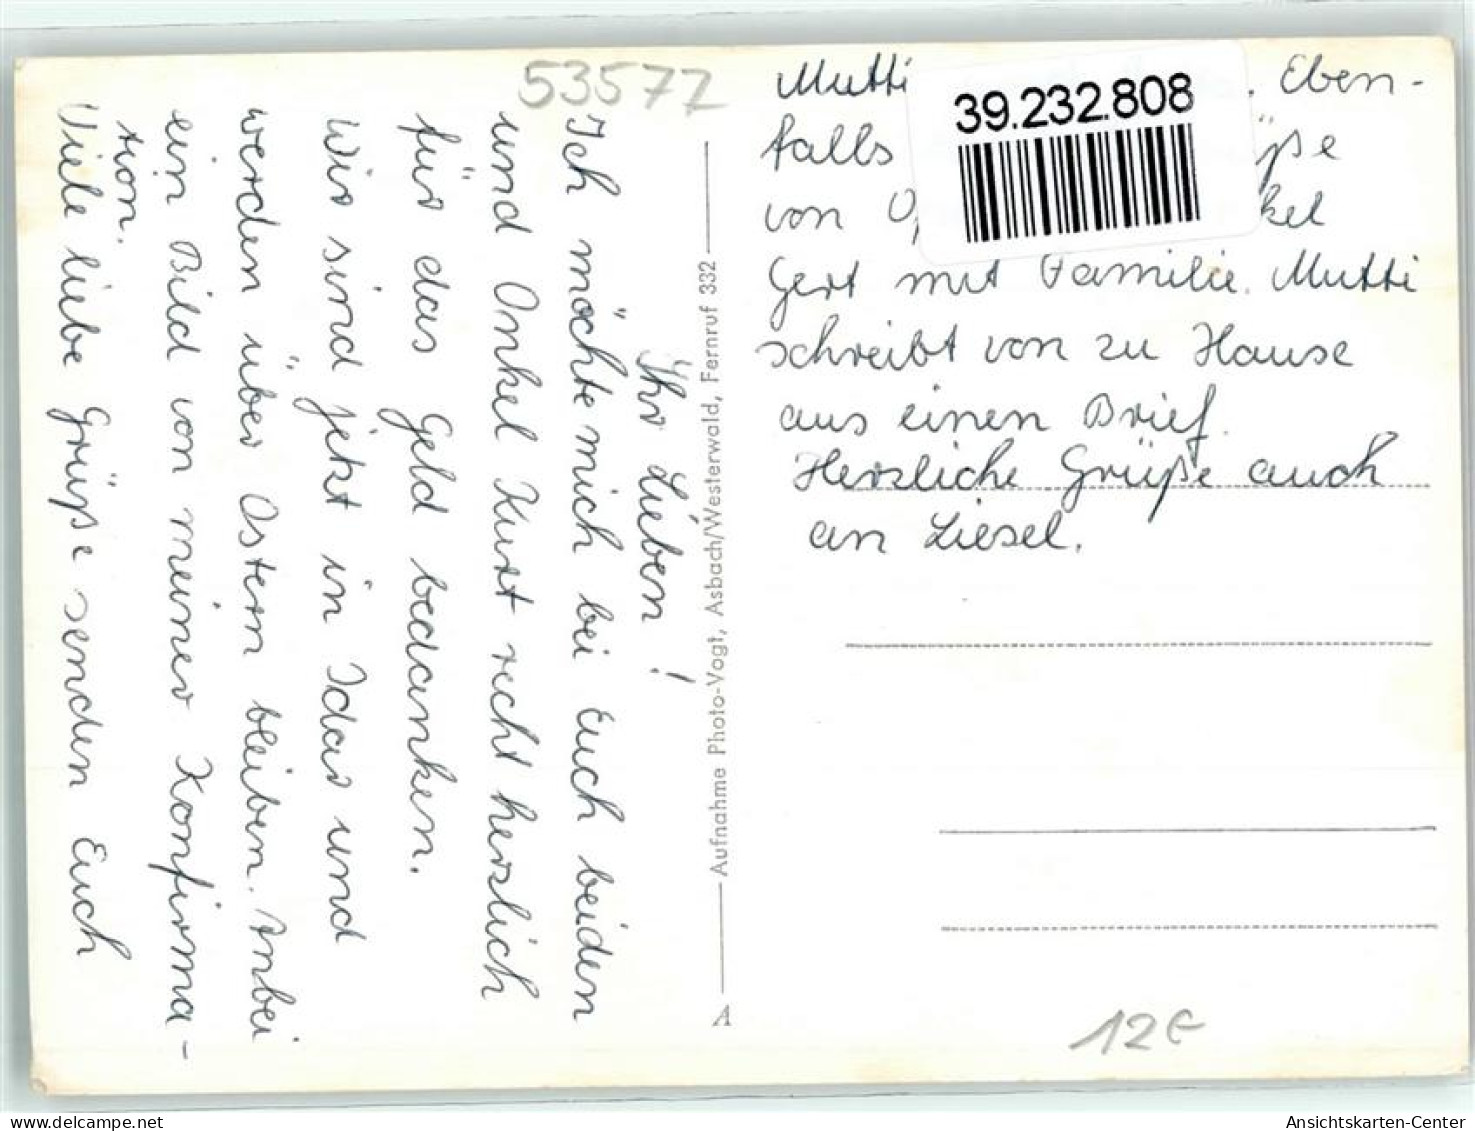 Ihr Lieben!
Ich möchte mich bei Euch beiden
und Onkel Kurt recht herzlich
für das Geld bedanken.
Wir sind jetzt in Idar und
werden über Ostern bleiben. Inbei
ein Bild von meiner Konfirma-
tion.
Viele liebe Grüße senden Euch
Mutti
Eben-
falls
von
Gert mit Familie. Mutti
schreibt von zu Hause
aus einen Brief.
Herzliche Grüße auch
an Liesel.
53577
39.232.808
Aufnahme Photo-Vogt, Asbach/Westerwald, Fernruf 332
A
12€
oldthing.de
Ansichtskarten-Center